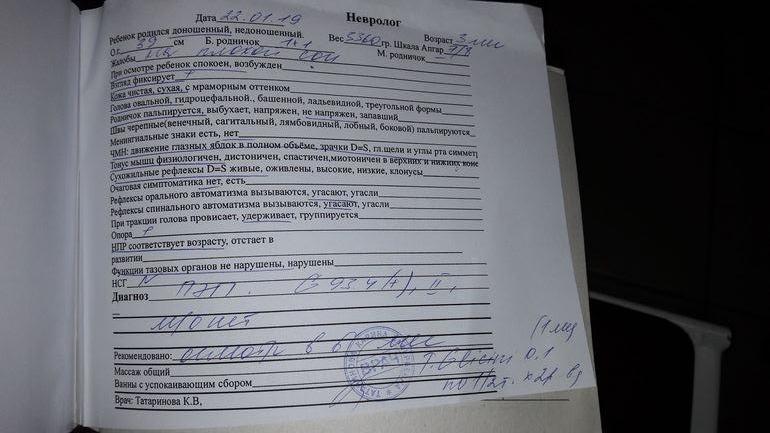 Дата 22.01.19 Невролог
Ребенок родился доношенный, недоношенный. Вес 5300 гр. Возраст 3 мес
О.г. 39 см Б. родничок 1х1 Шкала Апгар 7/8
Жалобы на плохой сон М. родничок
При осмотре ребенок спокоен, возбужден
Взгляд фиксирует +
Кожа чистая, сухая, с мраморным оттенком
Голова овальной, гидроцефальной., башенной, ладьевидной, треугольной формы
Родничок пальпируется, выбухает, напряжен, не напряжен, запавший
Швы черепные(венечный, сагитальный, лямбовидный, лобный, боковой) пальпируются
Менингиальные знаки есть, нет
ЧМН: движение глазных яблок в полном объёме, зрачки D=S, гл.щели и углы рта симмет
Тонус мышц физиологичен, дистоничен, спастичен,миотоничен в верхних и нижних коне
Сухожильные рефлексы D=S живые, оживлены, высокие, низкие, клонусы
Очаговая симптоматика нет, есть
Рефлексы орального автоматизма вызываются, угасают, угасли
Рефлексы спинального автоматизма вызываются, угасают, угасли
При тракции голова провисает, удерживает, группируется
Опора +
НПР соответствует возрасту, отстает в
развитии
Функции тазовых органов не нарушены, нарушены
НСГ N
Диагноз G 93.4 II,
м/о нет
Рекомендовано: осмотр в 6 мес
Массаж общий (1 мес
Ванны с успокаивающим сбором Т. 0.1
по 1/2т. х 2р
Врач: Татаринова К.В,
ВРАЧ